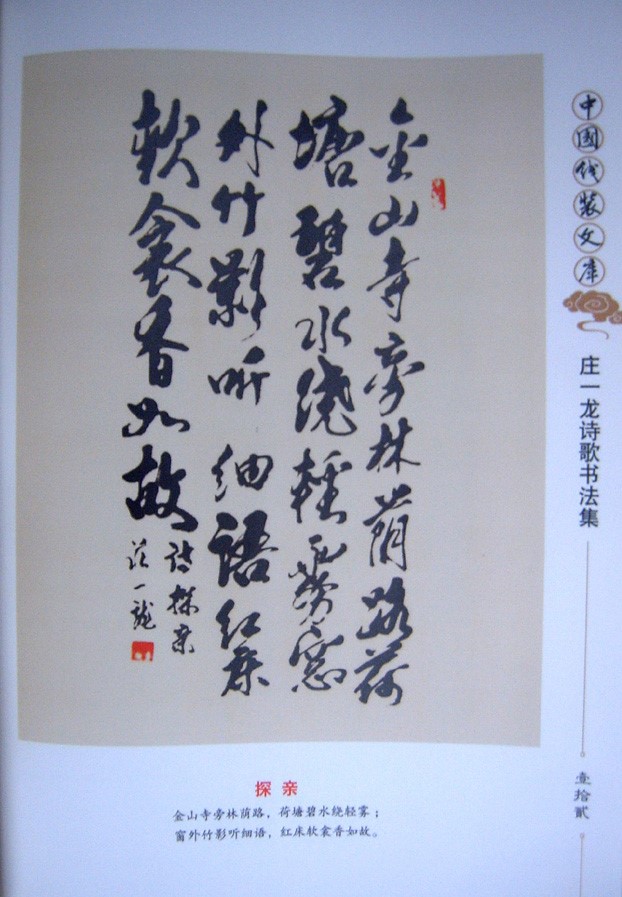 金山寺旁林荫路荷
塘碧水绕輕雾窓
外竹影听细语红床
軟衾香如故
诗探亲
莊一龍
中国线装文库
庄一龙诗歌书法集
壹拾贰
探亲
金山寺旁林荫路，荷塘碧水绕轻雾；
窗外竹影听细语，红床软衾香如故。